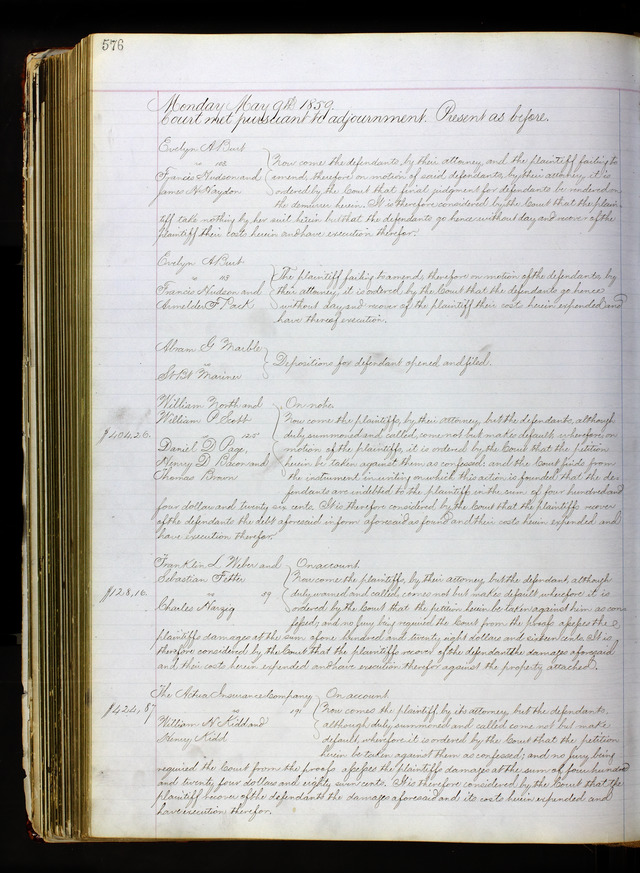 576
Monday May 9th 1859.
Court met pursuant to adjournment. Present as before.
Evelyn A Burt
vs 128
Francis Hudson and
James N Haydon
Now come the defendants, by their attorney, and the plaintiff failing to
amend, therefore on motion of said defendants, by their attorney, it is
ordered by the Court that final judgment for defendants be rendered on
the demurrer herein. It is therefore considered by the Court that the plain-
tiff take nothing by her suit herein but that the defendants go hence without day and recover of the
plaintiff their costs herein and have execution therefor.
Evelyn A Burt
vs 128
Francis Hudson and
Arnelder F Pack
The plaintiff failing to amend, therefore on motion of the defendants, by
their attorney, it is ordered, by the Court that the defendants go hence
without day and recover of the plaintiff their costs herein expended and
have thereof execution.
Abram G Marble
vs
St Bt Mariner
Depositions for defendant opened and filed.
William North and
William P. Scott
$404.26. 125
Daniel D Page,
Henry D. Bacon and
Thomas Brown
On note.
Now come the plaintiffs, by their attorney, but the defendants, although
duly summoned and called, come not but make default, wherefore, on
motion of the plaintiffs, it is ordered, by the Court that the petition
herein be taken against them as confessed: and the Court finds from
the instrument in writing on which this action is founded that the de-
fendants are indebted to the plaintiff in the sum of four hundred and
four dollars and twenty six cents. It is therefore considered by the Court that the plaintiffs recover
of the defendants the debt aforesaid in form aforesaid as found and their costs herein expended and
have execution therefor.
Franklin L Weber and
Sebastian Fetter
$128,16. vs 89
Charles Herzig
On account
Now come the plaintiffs, by their attorney but the defendant, although
duly warned and called, comes not but makes default, wherefore it is
ordered by the Court that the petition herein be taken against him as con-
fessed; and no jury being required the Court from the proofs assess the
plaintiffs damages at the sum of one hundred and twenty eight dollars and sixteen cents. It is
therefore considered by the Court that the plaintiffs recover of the defendant the damages aforesaid
and their costs herein expended and have execution therefor against the property attached.
The Actna Insurance Company
$424,87 vs 191
William N Kidd and
Henry Kidd
On account
Now comes the plaintiff by its attorney but the defendants,
although duly summoned and called come not but make
default, wherefore it is ordered by the Court that the petition
herein be taken against them as confessed; and no jury being
required the Court from the proofs assess the plaintiffs damages at the sum of four hundred
and twenty four dollars and eighty seven cents. It is therefore considered by the Court that the
plaintiff recover of the defendants the damages aforesaid and its costs herein expended and
have execution therefor.